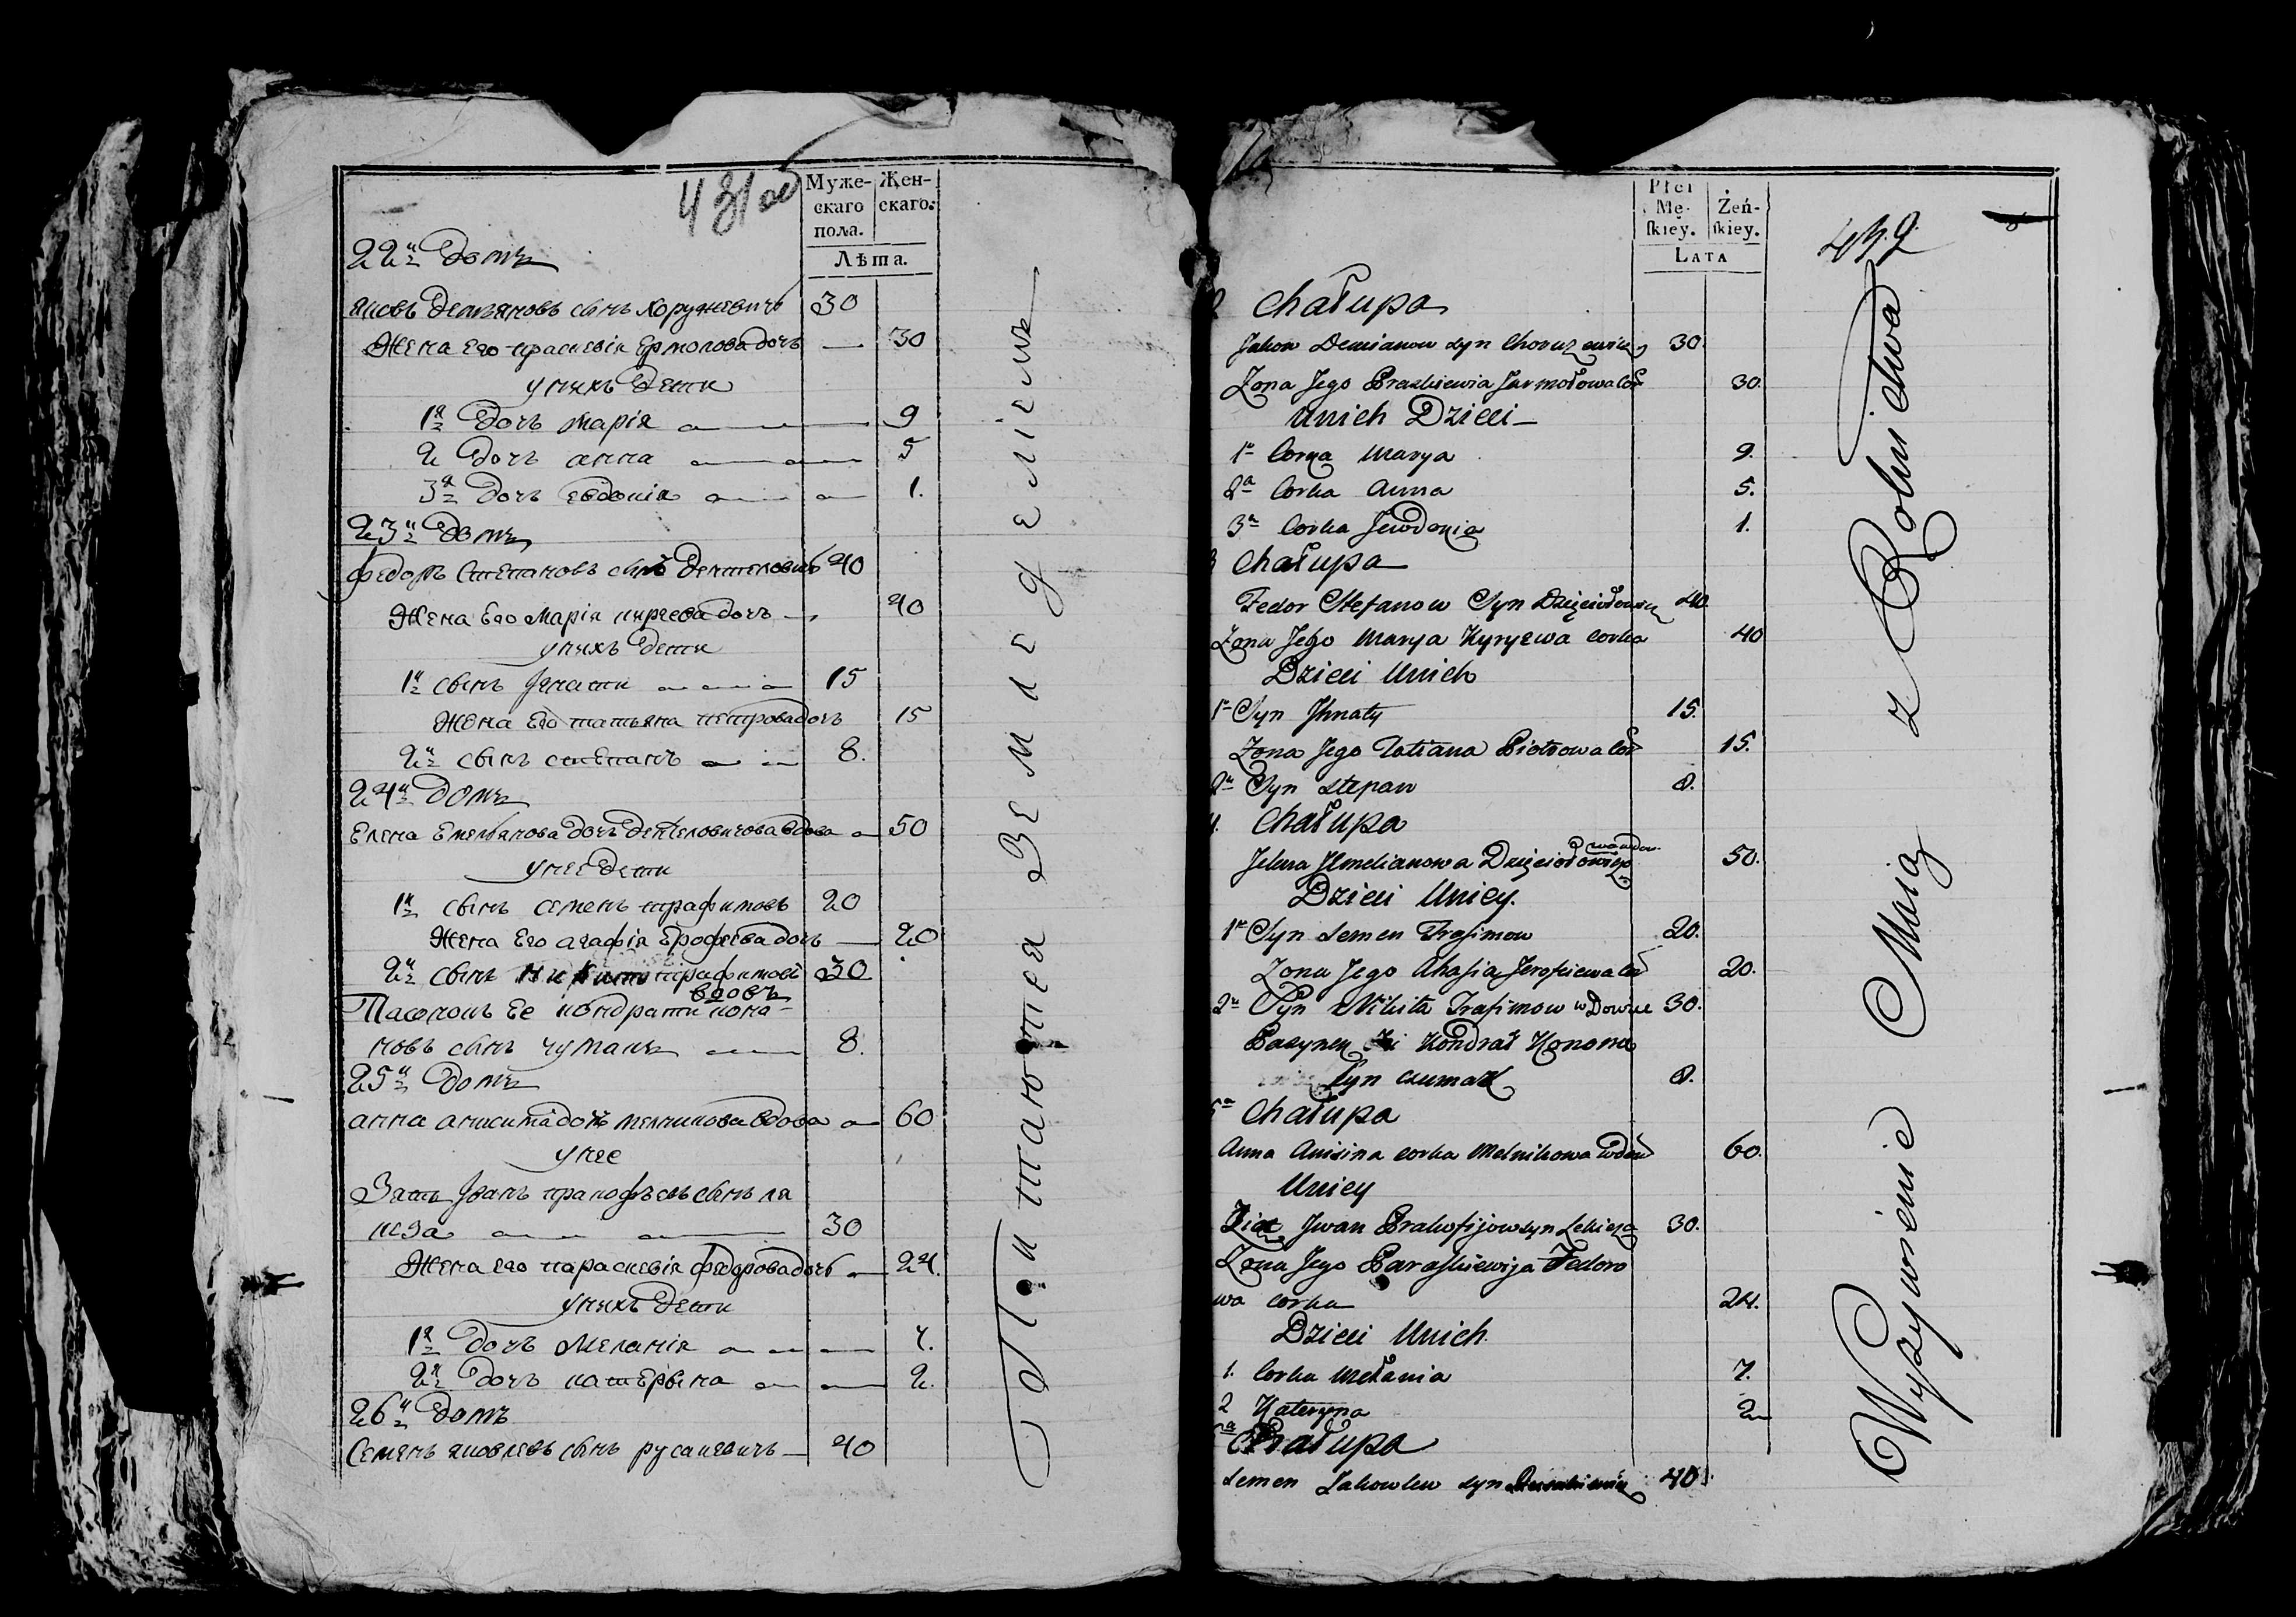 431 об
Муже-
скаго
пола.
Жен-
скаго.
Лѣта.
22й домъ
Яковъ Демьяновъ сынъ Хоружевичь 30
Жена его праскевія Ермолова дочь 30
у нихъ дети
1я дочь марія 9
2 дочь анна 5
3я дочь евдокія 1.
23й домъ
федоръ Степановъ сынъ 40
Жена Его марія кирѣева дочь 40
у нихъ дети
1й сынъ Игнати 15
Жена Его татьяна петрова дочь 15
2й сынъ степанъ 8.
24й домъ
Елена Емельянова дочь вдова 50
у нее дети
1й сынъ семенъ трафимовъ 20
Жена Его агафія Ерофѣева дочь 20
2й сынъ Никита трафимовъ 30
вдовъ
Пасонокъ Ее кондрати коно-
новъ сынъ чумакъ 8.
25й домъ
анна дочь мелникова вдова 60
у нее
Зять Иванъ пракофьевъ сынъ ле
кеза 30
Жена его параскевія федорова дочь 24.
у нихъ дети
1я дочь Меланія 7.
2я дочь катерына 2.
26й домъ
Семенъ яковлевъ сынъ русакевичь 40
Питаютея Земледелiемъ
Płci
Mę-
skiey.
Żeń-
skiey.
LATA
Chałupa
Jakow Demianow syn Choruzewicz 30.
Zona Jego Praskiewia Jarmołowa cor 30.
Unich Dzieci
1a Corka Marya 9.
2a Corka Anna 5.
3a Corka Jewdokia 1.
Chałupa
Fedor Stefanow Syn Dzięciołowicz 40
Zona Jego Marya Kyryewa corka 40
Dzieci Unich
1n Syn Ihnaty 15.
Zona Jego Tatiana Piotrowa cor 15.
2n Syn Stepan 8.
4. Chałupa
Jelena Jemelianowa 50.
Dzieci Uniey.
1n Syn Semen Trafimow 20.
Zona Jego Ahafia Jerofiewa cor 20.
2n Syn Nikita Trafimow wDowiec 30.
Pasynek Jei Kondrat Konono
Syn czumak 8.
5a Chałupa
Anna Anisina corka Melnikowa 60.
Uniey
Ziat Iwan Prakofijow syn Lekieza 30.
Zona Jego Paraskiewija Fedoro
wa corka 24.
Dzieci Unich.
1. Corka Mełania 7.
2 Kateryna 2
Chałupa
Semen Jakowlew syn 40.
Wyzywienie Maią z Rolnictwa